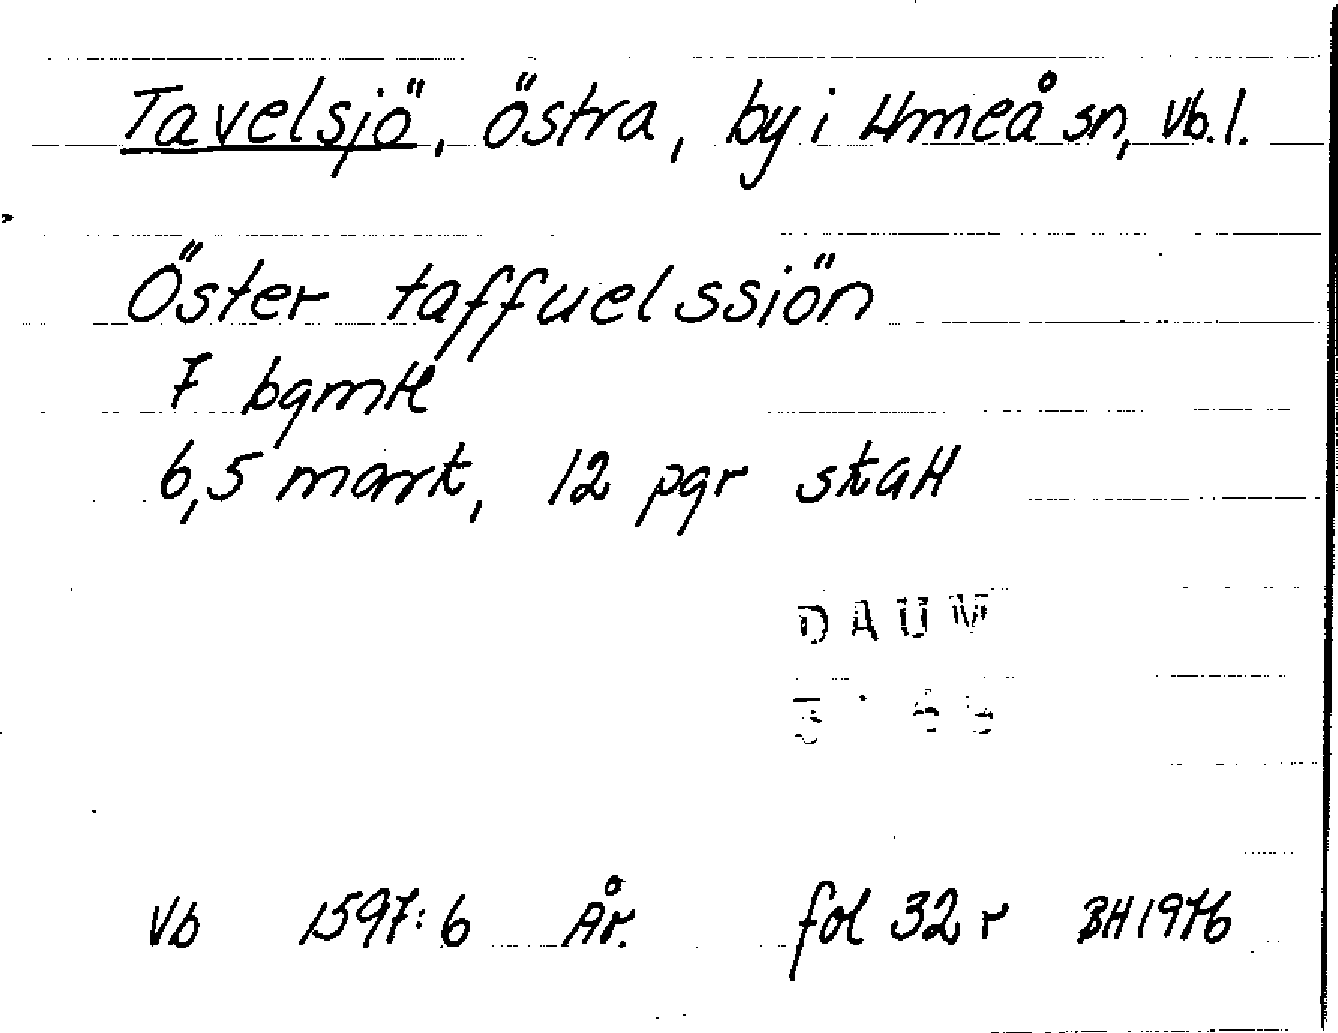 Tavelsjö, östra, by i Umeå sn, Vb.l.
Öster taffuelssiön
7 bgmtl
6,5 mark, 12 pgr skatt
DAUM
Vb 1597:6 År. fol 32 r BH 1976